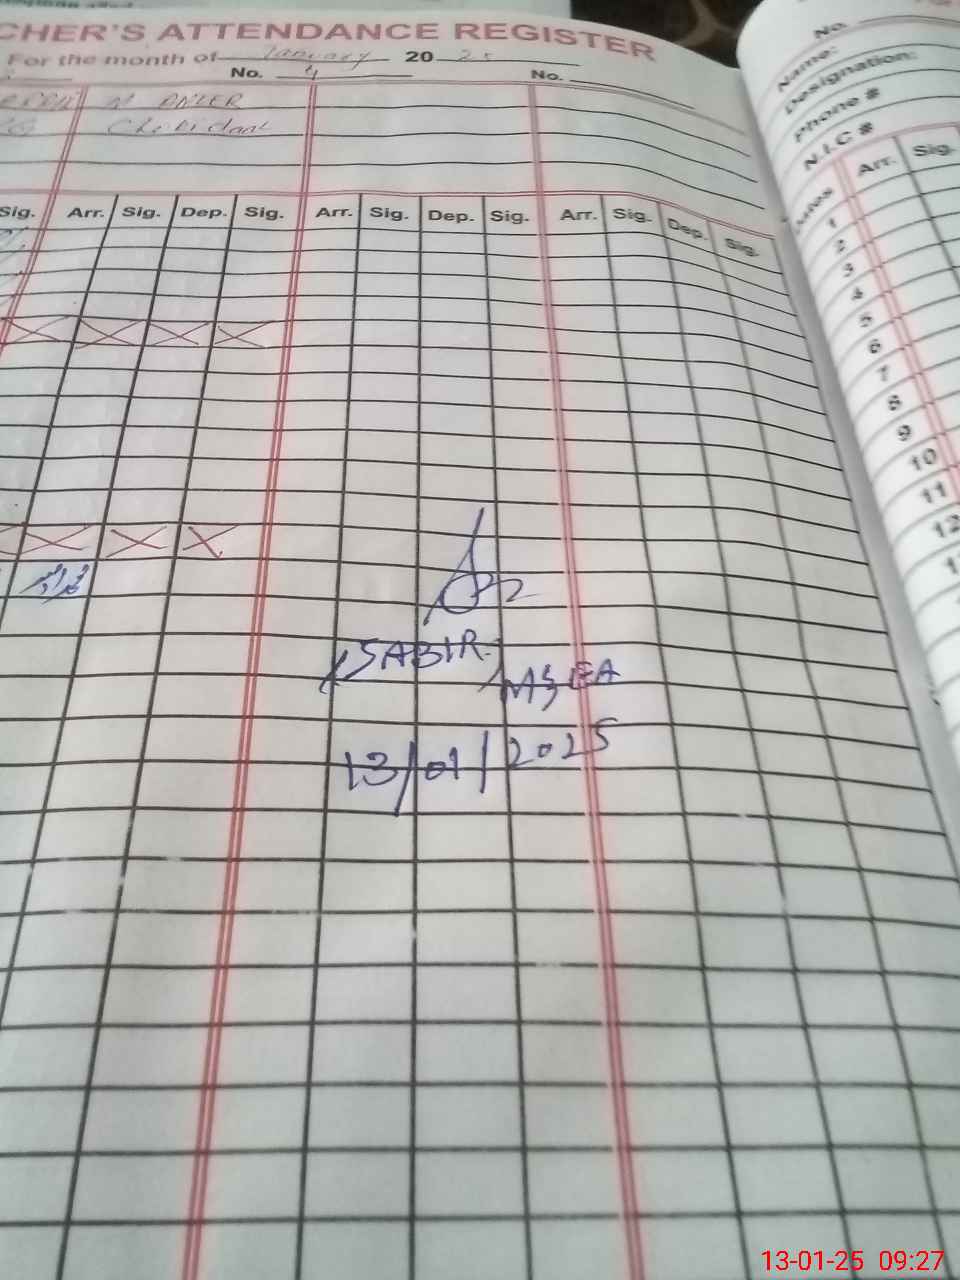 CHER'S ATTENDANCE REGISTER
For the month of January 20 25
No. 4 No.
Sig. Arr. Sig. Dep. Sig. Arr. Sig. Dep. Sig. Arr. Sig. Dep. Sig.
SABIR
MSEA
13/01/2025
No.
Name:
Designation:
Phone #
N.I.C #
Arr. Sig.
1
2
3
4
5
6
7
8
9
10
11
12
13-01-25 09:27